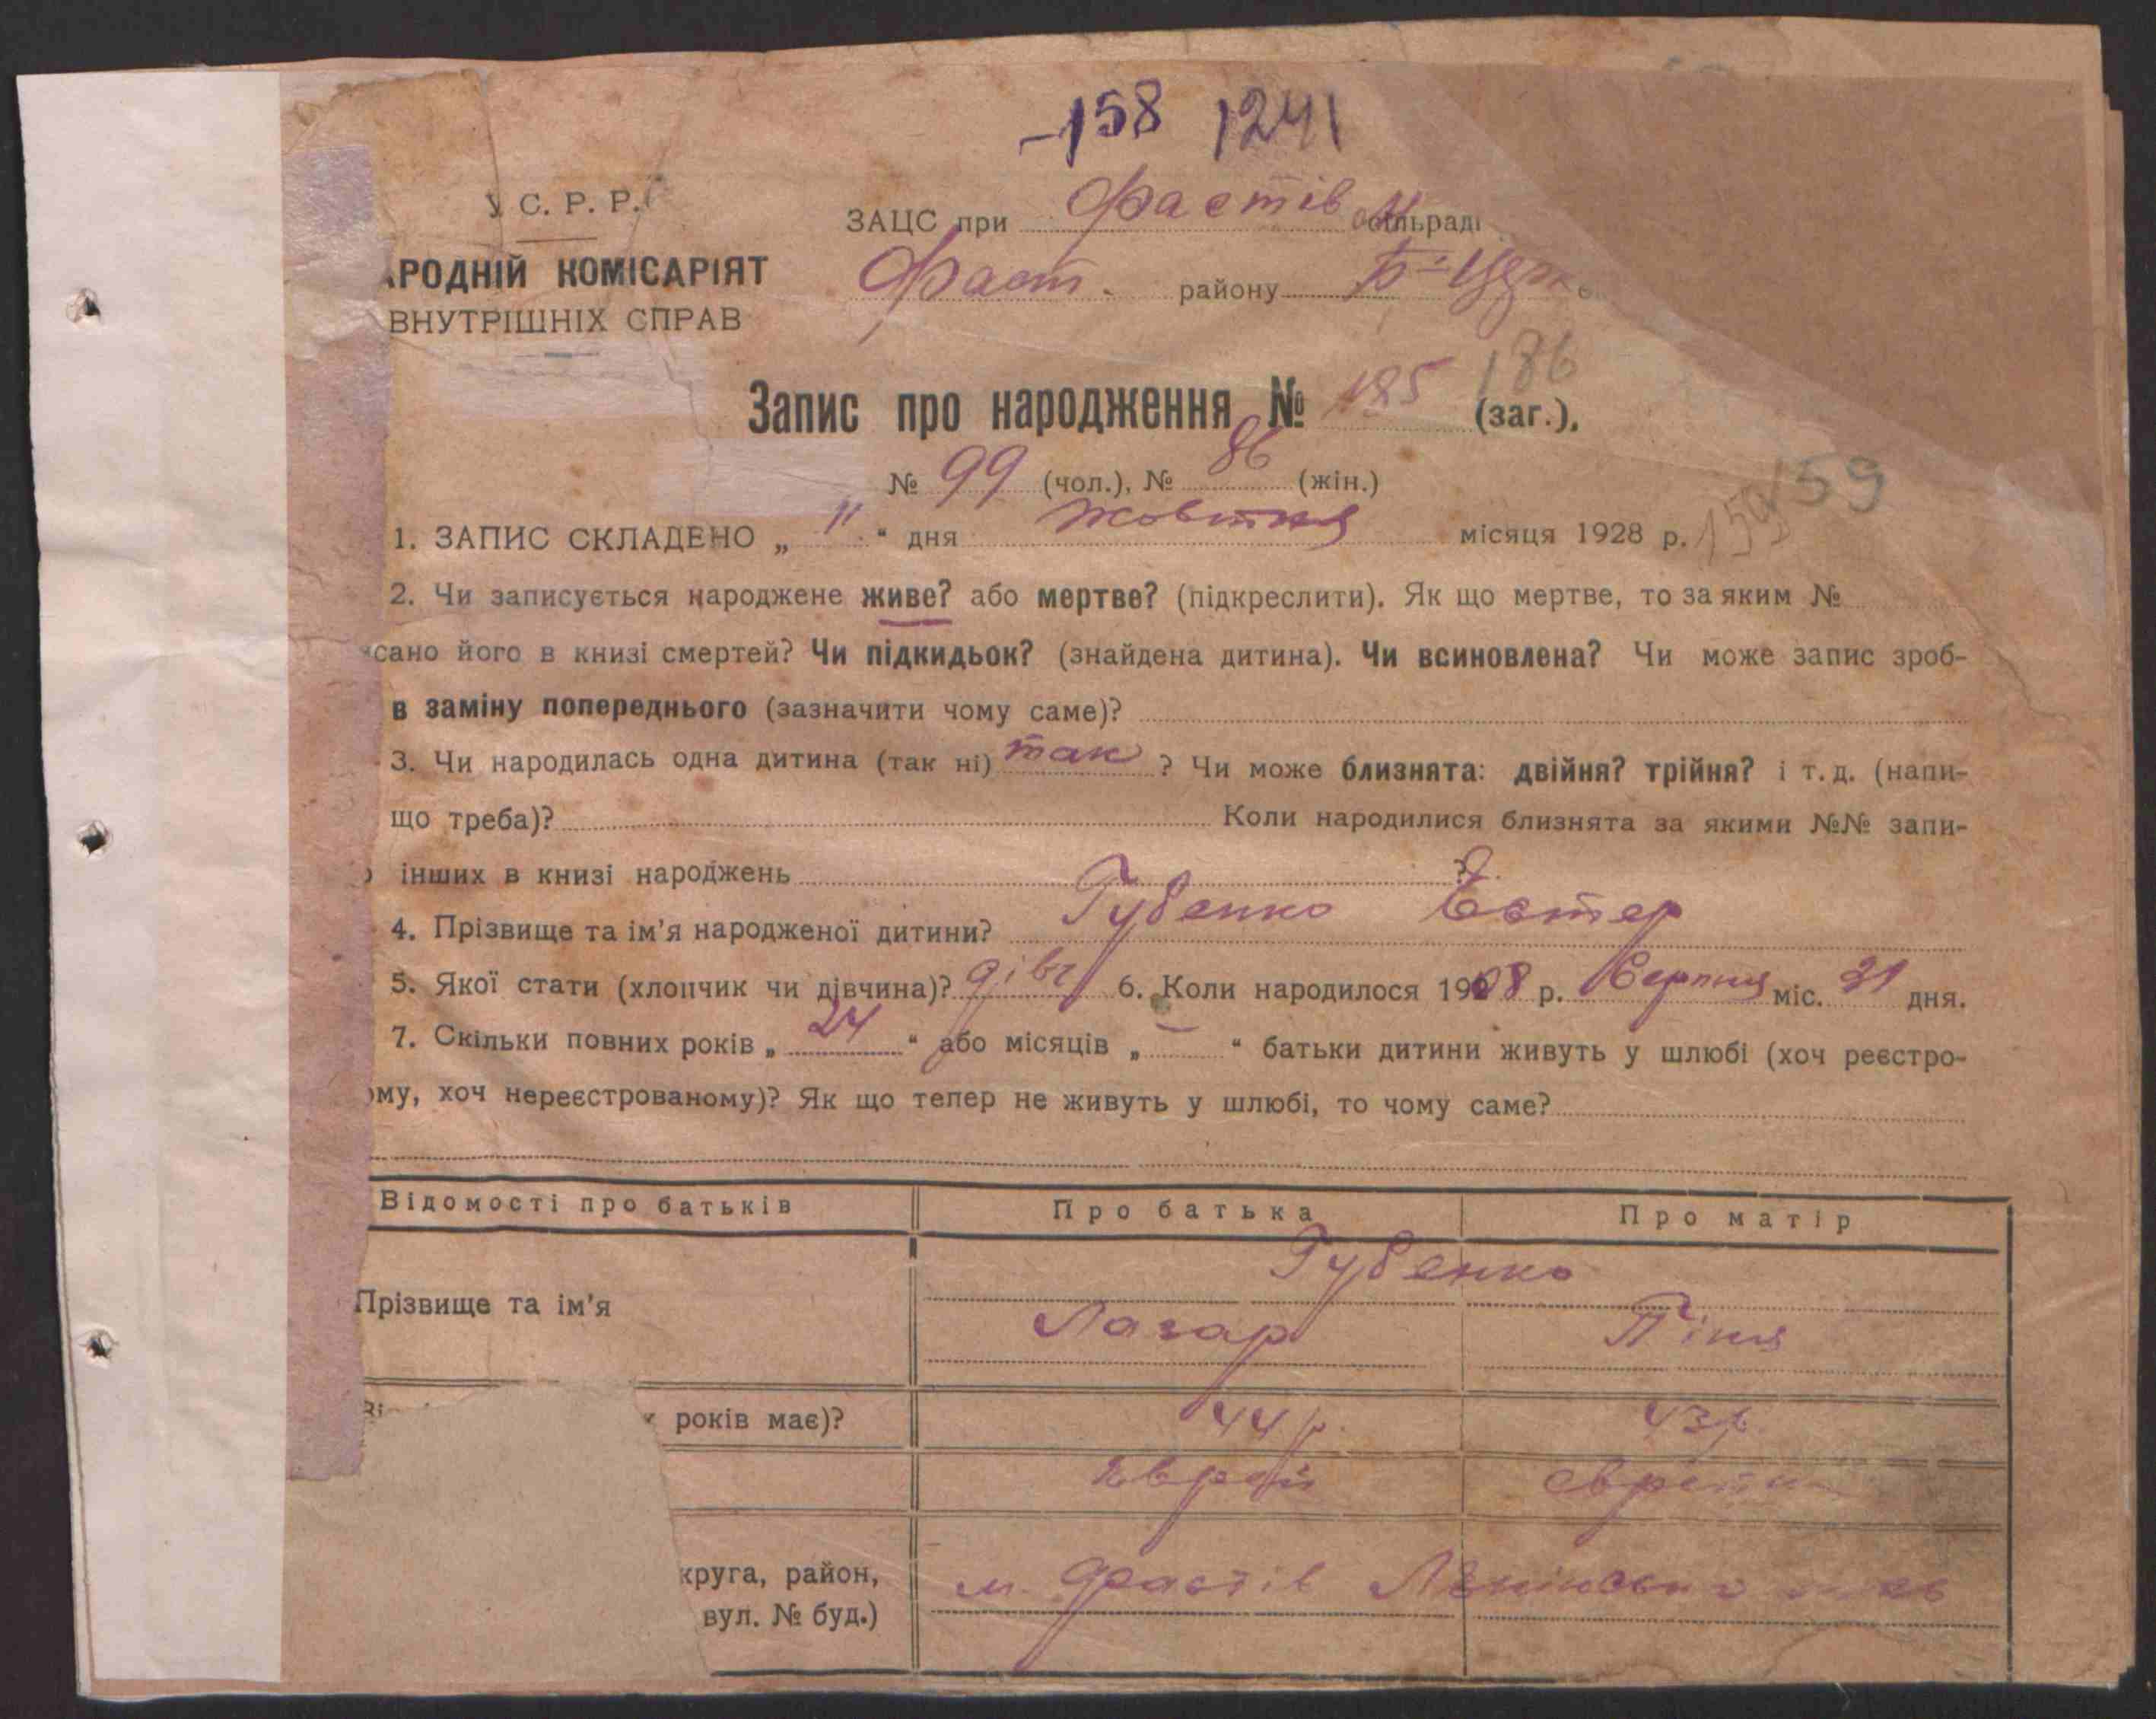 -158 1241
У С. Р. Р.
ЗАЦС при Фастів сільраді
АРОДНІЙ КОМІСАРІЯТ
Фаст. району Б-Церк
ВНУТРІШНІХ СПРАВ
Запис про народження № 185 186 (заг.),
№ 99 (чол.), № 86 (жін.)
159
1. ЗАПИС СКЛАДЕНО „ 11 “ дня Жовтня місяця 1928 р. 159
2. Чи записується народжене живе? або мертве? (підкреслити). Як що мертве, то за яким №
сано його в книзі смертей? Чи підкидьок? (знайдена дитина). Чи всиновлена? Чи може запис зроб-
в заміну попереднього (зазначити чому саме)?
3. Чи народилась одна дитина (так ні) так ? Чи може близнята: двійня? трійня? і т. д. (напи-
що треба)? Коли народилися близнята за якими №№ запи-
інших в книзі народжень ?
4. Прізвище та ім'я народженої дитини? Губенко Естер
5. Якої стати (хлопчик чи дівчина)? дівч 6. Коли народилося 1908 р. Серпня міс. 31 дня.
7. Скільки повних років „ 24 “ або місяців „ — “ батьки дитини живуть у шлюбі (хоч реєстро-
ому, хоч нереєстрованому)? Як що тепер не живуть у шлюбі, то чому саме?
Відомості про батьків Про батька Про матір
Губенко
Прізвище та ім'я
Лазар Піня
Ві років має)? 44 р. 43 р.
Єврей єврейка
круга, район,
м. Фастів Ленінська
вул. № буд.)